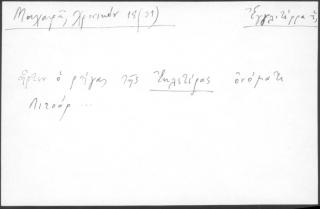 Μαχαιρᾶς, Χρονικόν 15 (31) Ἐγγλιτέρρα ἡ
ἦρτεν ὁ ρήγας τῆς Ἐγκλετέρας ὀνόματι
Λιτσάρ ...